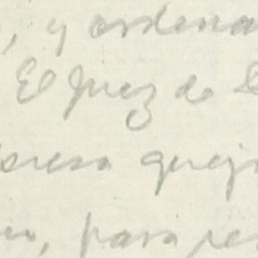 , y ordena
El Juez de
presa queja
, para